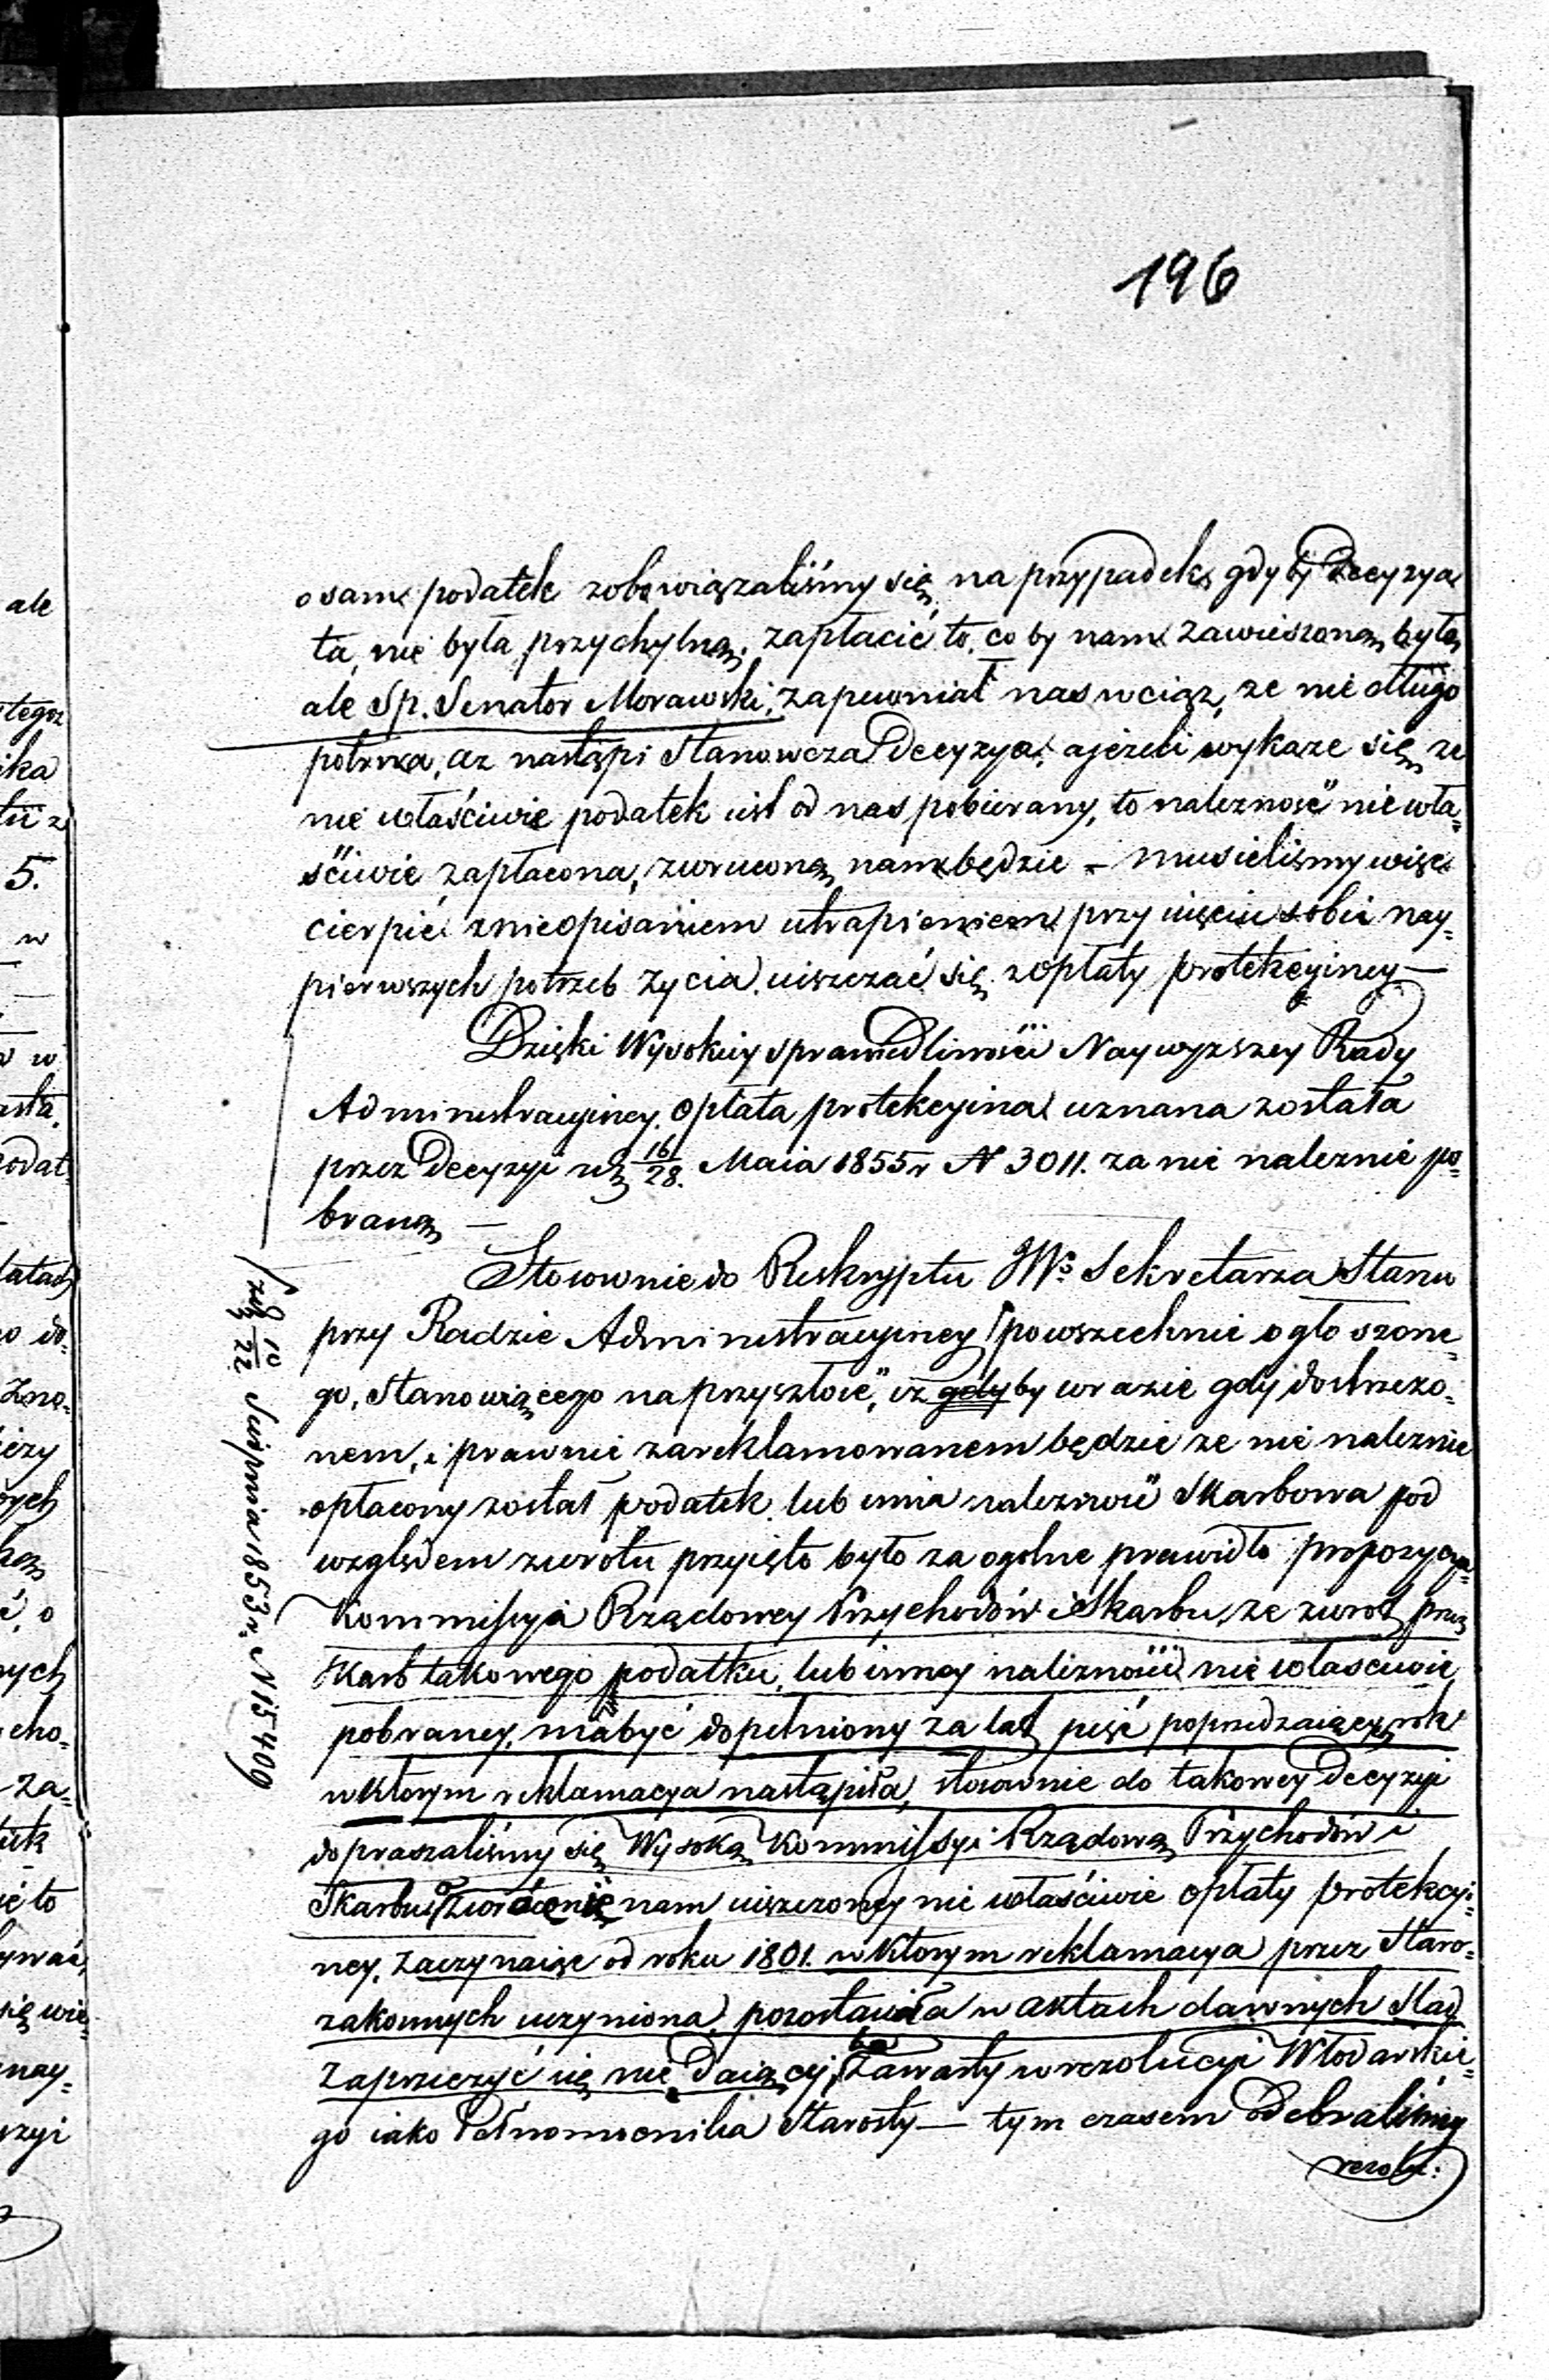 196
o sam podatek zobowiązaliśmy się, na przypadek, gdyby Decyzya
ta, nie była przychylną, zapłacić to, co by nam zawieszoną było
ale Sp. Senator Morawski, zapewniał nas wciąz, ze nie długo
potrwa, az nastąpi Stanowcza Decyzya, a jeżeli wykaze się ze
nie właściwie podatek iest od nas pobierany, to nalezność nie wła=
ściwie zapłacona, zwrucona nam będzie – musieliśmy więc
cierpieć z nieopisaniem utrapieniem przy uięciu sobie nay=
pierwszych potrzeb zycia, uiszczać się z opłaty protekcyiney –
Dzięki Wysokiey sprawiedliwości Naywyzszey Rady
Administracyiney, opłata protekcyina uznana została
przez Decyzyi z dn 16/28. Maia 1855 r N 3011. za nie naleznie po=
braną –
Stosownie do Reskryptu JWo Sekretarza Stanu
przy Radzie Administracyiney / powszechnie ogłoszone=
go, Stanowiącego na przyszłość, iz gdyby w razie gdy dostrzezo=
nem, i prawnie zareklamowanem będzie ze nie naleznie
opłacony został podatek, lub inna nalezność Skarbowa pod
względem zwrotu przyięto było za ogolne prawidło propozycya
Kommissyi Rządowey Przychodów i Skarbu, ze zwrot przez
Skarb takowego podatku, lub inney nalezności nie właściwie
pobraney, ma być dopełniony za lat pięć poprzedzaiących rok
w ktorym reklamacya nastąpiła, stosownie do takowey Decyzyi
dopraszaliśmy się Wysoką Kommissyi Rządową Przychodów i
Skarbu o zwrócenie nam uiszczoney nie właściwie opłaty protekcyi=
ney, zaczynaiąc od roku 1801. w ktorym reklamacya przez Staro=
zakonnych uczyniona, pozostawiła w aktach dawnych slad
zaprzeczyć się nie daiący, ba zawarty w rezolucyi Włodarskie=
go iako Pełnomocnika Starosty – tym czasem odebraliśmy
rezolu:
/ z dn 10/22 Sierpnia 1853 r. N 15409
ale
5.
w